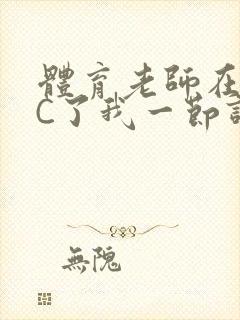 體育老師在
C了我一節
無隗